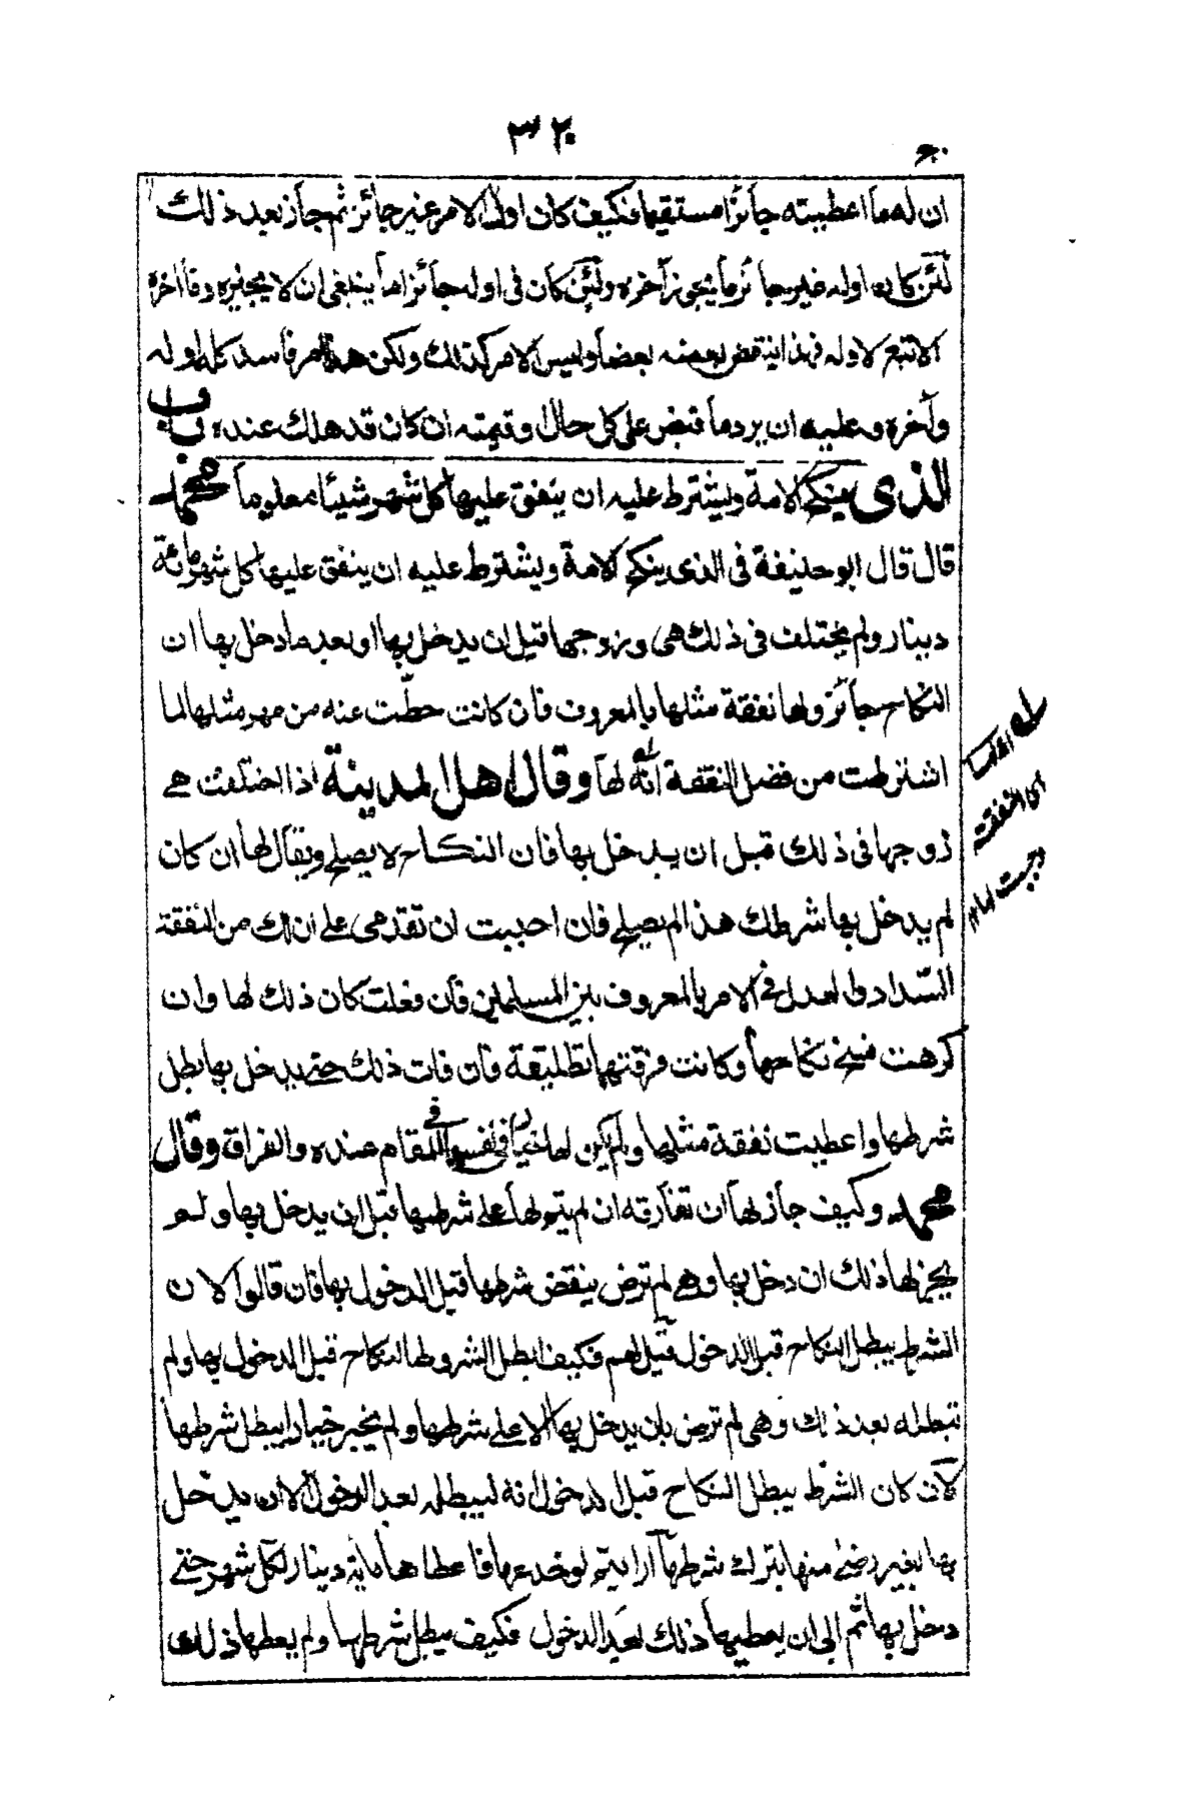 ٣٢٠
ان له ما اعطيته جائزا مستقيما فكيف كان اول الامر غير جائز ثم جاز بعد ذلك
لئن كان اوله غير جائز ما يجوز آخره ولئن كان فى اوله جائزا ما ينبغى ان لا يجيزه وما اخره
الا تبع لاوله فهذا ينقض بعضه بعضا وليس الامر كذلك ولكن هذا امر فاسد كله اوله
وآخره وعليه ان يرد ما قبض على كل حال او قيمته ان كان قد هلك عنده باب
الذى ينكح الامة ويشترط عليه ان ينفق عليها كل شهر شيئا معلوما محمد
قال قال ابو حنيفة فى الذى ينكح الامة ويشترط عليه ان ينفق عليها كل شهر مائة
دينار ولم يختلف فى ذلك هى وزوجها قبل ان يدخل بها او بعد ما دخل بها ان
النكاح جائز ولها نفقة مثلها بالمعروف فان كانت حطّت عنه من مهر مثلها لما
اشترطت من فضل النفقة انه لها وقال اهل المدينة اذا اختلفت هى
زوجها فى ذلك قبل ان يدخل بها فان النكاح لا يصلح ويقال لها ان كان
لم يدخل بها شرطك هذا لم يصلح فان احببت ان تقدمى على ان لك من النفقة
السّداد والعدل فى الامر بالمعروف بين المسلمين فان فعلت كان ذلك لها وان
كرهت فسخ نكاحها وكانت فرقتها تطليقة فان فات ذلك حتى يدخل بها بطل
شرطها واعطيت نفقة مثلها ولم يكن لها خيار فى نفسها فى المقام عنده والفراق وقال
محمد وكيف جاز لها ان تفارقه ان لم يتم لها على شرطها قبل ان يدخل بها ولم
يجز لها ذلك ان دخل بها وهى لم ترض ينقض شرطها قبل الدخول بها فان قالوا لان
الشرط يبطل النكاح قبل الدخول قيل لهم فكيف ابطل الشروط النكاح قبل الدخول بها ولم
تبطله بعد ذلك وهى لم ترض بان يدخل بها الا على شرطها ولم يخير خيارا يبطل شرطها
لان كان الشرط يبطل النكاح قبل الدخول انه ليبطله بعد الدخول الا ان يدخل
بها بغير رضى منها بترك شرطها ارايتم لو خدعها فاعطاها مائة دينار لكل شهر حتى
دخل بها ثم ابى ان يعطيها ذلك بعد الدخول فكيف يبطل شرطها ولم يعطها ذلك
اى النفقة